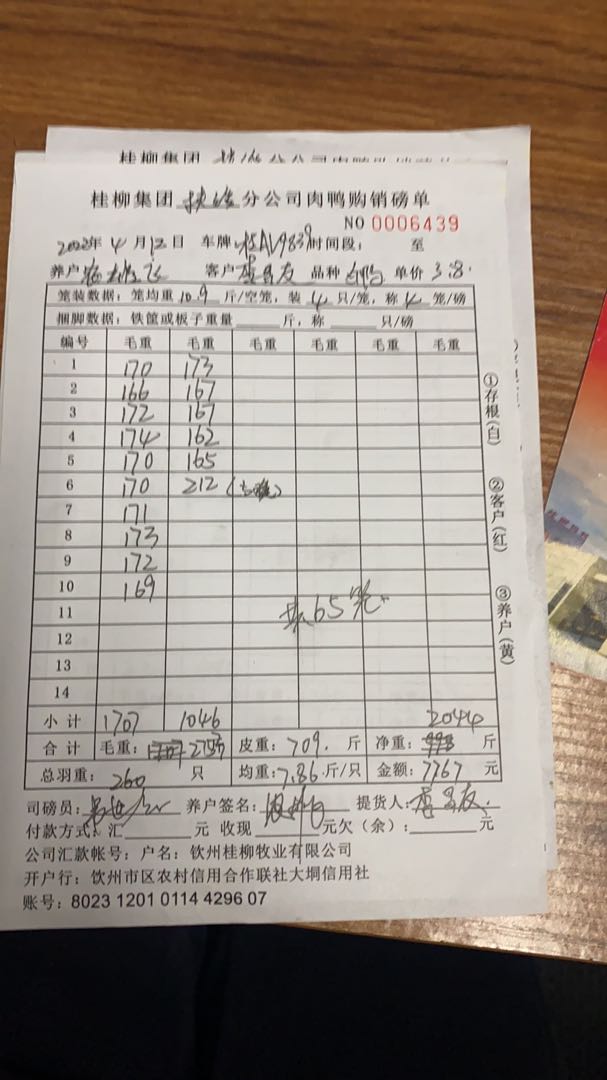 桂柳集团 分公司肉鸭购销磅单
桂柳集团 分公司肉鸭购销磅单
NO 0006439
2022年 4 月 12 日 车牌: 桂AV9839 时间段: 至
养户 客户 李昌友 品种 单价 3.8
笼装数据: 笼均重 10.9 斤/空笼, 装 4 只/笼, 称 4 笼/磅
捆脚数据: 铁筐或板子重量 斤, 称 只/磅
编号 毛重 毛重 毛重 毛重 毛重 毛重
1 170 173
2 166 167
3 172 167
4 174 162
5 170 165
6 170 212
7 171
8 173
9 172
10 169
11 共65笼
12
13
14
小计 1707 1046 2044
合计 毛重: 2753 皮重: 709. 斤 净重: 斤
总羽重: 260 只 均重: 7.86 斤/只 金额: 7767 元
司磅员: 养户签名: 提货人: 李昌友
付款方式: 汇 元 收现 元欠(余): 元
公司汇款帐号: 户名: 钦州桂柳牧业有限公司
开户行: 钦州市区农村信用合作联社大垌信用社
账号: 8023 1201 0114 4296 07
①存根(白)
②客户(红)
③养户(黄)